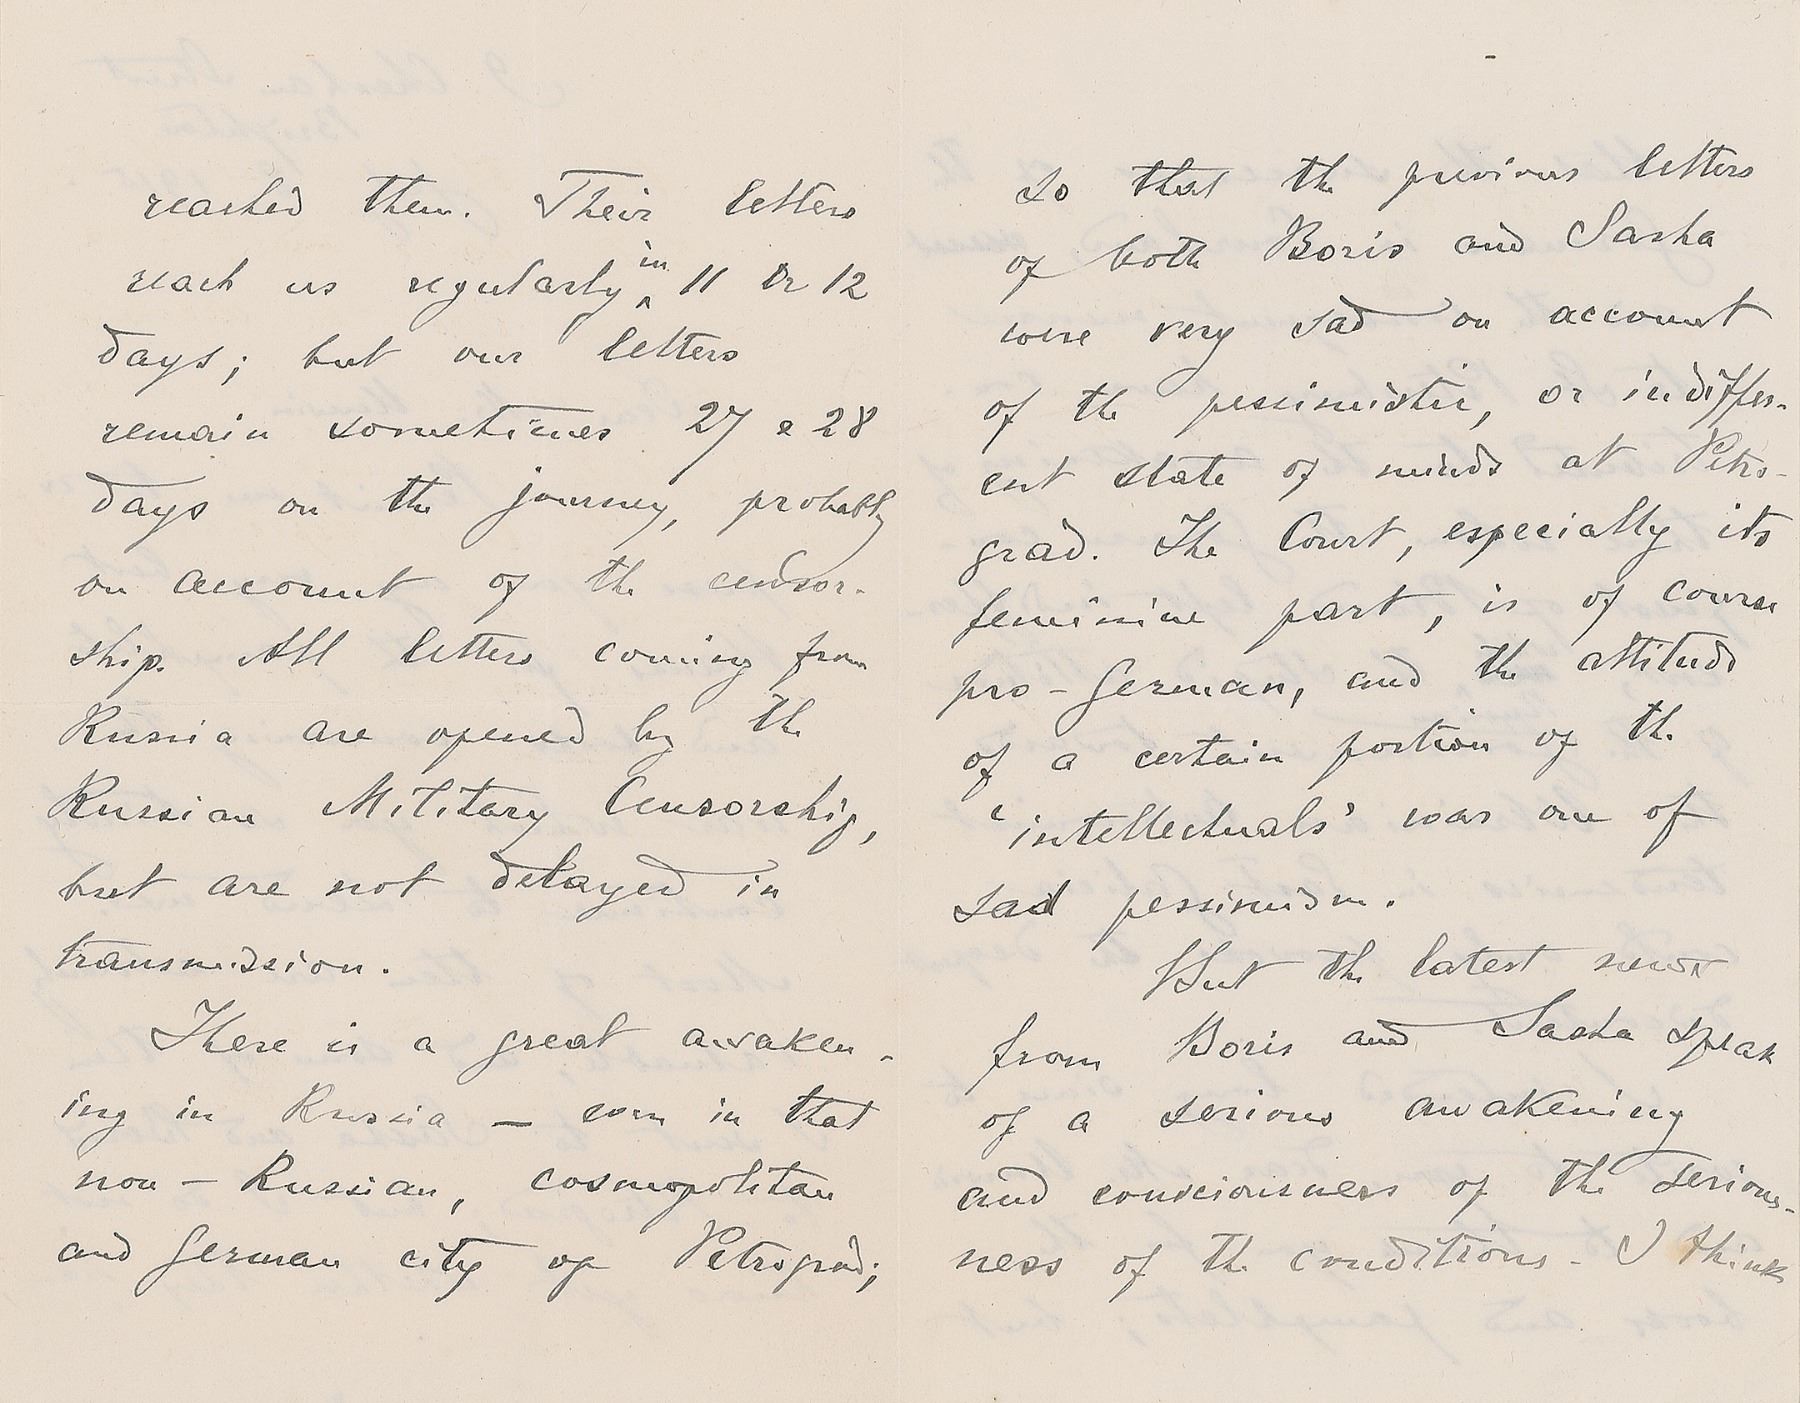 reached them. Their letters
reach us regularly in 11 or 12
days; but our letters
remain sometimes 27 & 28
days on the journey, probably
on account of the censor-
ship. All letters coming from
Russia are opened by the
Russian Military Censorship,
but are not delayed in
transmission.
There is a great awaken-
ing in Russia — even in that
non-Russian, cosmopolitan
and German city of Petrograd;
so that the previous letters
of both Boris and Sasha
were very sad on account
of the pessimistic, or indiffer-
ent state of minds at Petro-
grad. The Court, especially its
feminine part, is of course
pro-German, and the attitude
of a certain portion of the
'intellectuals' was one of
sad pessimism.
But the latest news
from Boris and Sasha speak
of a serious awakening
and consciousness of the serious-
ness of the conditions. I think